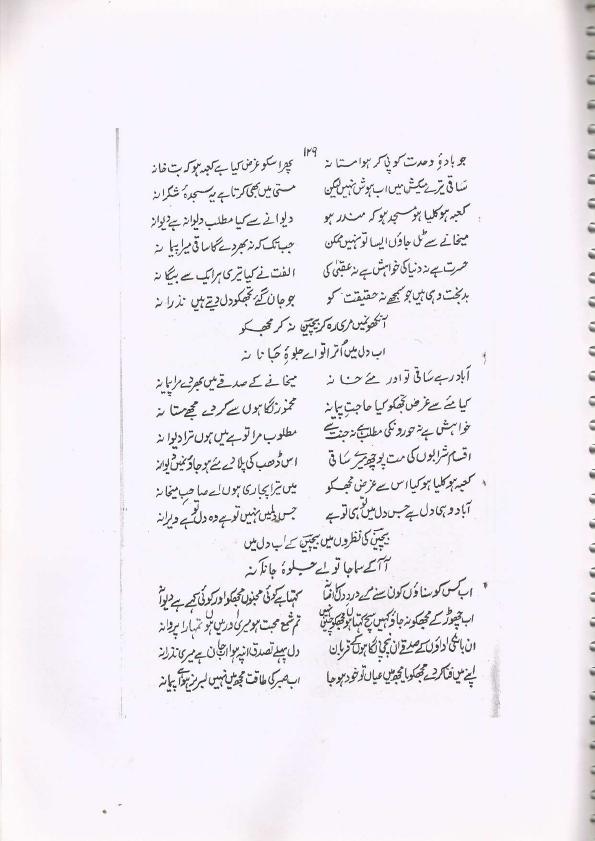 ۱۲۹
جو بادۂ وحدت کو پی کر ہوا مستانہ پھر اسکو غرض کیا ہے کعبہ ہو کہ بت خانہ
ساقی ترے میکش میں اب ہوش نہیں لیکن مستی میں بھی کرتا ہے یہ سجدۂ شکرانہ
کعبہ ہو کلیسا ہو مسجد ہو کہ مندر ہو دیوانے سے کیا مطلب دیوانہ ہے دیوانہ
میخانے سے ٹل جاؤں ایسا تو نہیں ممکن جب تک کہ نہ بھر دے گا ساقی میرا پیمانہ
حسرت ہے نہ دنیا کی خواہش ہے نہ عقبیٰ کی الفت نے کیا تیری ہر ایک سے بیگانہ
بدبخت وہی ہیں جو سمجھے نہ حقیقت کو جو جان گئے تجھکو دل دیتے ہیں نذرانہ
آنکھوں میں مری رہ کر بیچین نہ کر مجھکو
اب دل میں اُتر آ تو اے جلوۂ جانانہ
آباد رہے ساقی تو اور مئے خانہ میخانے کے صدقے میں بھر دے مرا پیمانہ
کیا مئے سے غرض مجھکو کیا حاجتِ پیمانہ مخمور نگاہوں سے کر دے مجھے مستانہ
خواہش ہے نہ حورونکی مطلب ہے نہ جنت سے مطلوب مرا تو ہے میں ہوں ترا دیوانہ
اقسام شرابوں کی مت پوچھ میرے ساقی اس ڈھب کی پلا دے مئے ہو جاؤں میں دیوانہ
کعبہ ہو کلیسا ہو کیا اس سے غرض مجھکو میں تیرا پجاری ہوں اے صاحبِ میخانہ
آباد وہی دل ہے جس دل میں تو ہی تو ہے جس دلمیں نہیں تو ہے وہ دل تو ہے ویرانہ
بیچین کی نظروں میں بیچین کے اب دل میں
آ آ کے سما جا تو اے جلوۂ جانانہ
اب کس کو سناؤں کون سنے گا میرے درد دل کا کہتا ہے کوئی مجنوں مجھکو اور کوئی کہے ہے دیوانہ
اب چھوڑ کے مجھکو نہ جاؤ کہیں سچ کہتا ہوں مجھکو چین نہیں تم شمع محبت ہو میری اور میں ہوں تمہارا پروانہ
ان بانکی اداؤں کے صدقے ان نیچی نگاہوں کے قرباں دل پہلے تصدق اپنے ہوا اب جان ہے میری نذرانہ
اپنے میں فنا کر دے مجھکو یا مجھ میں عیاں تو خود ہو جا اب صبر کی طاقت مجھ میں نہیں لبریز ہوا ہے پیمانہ